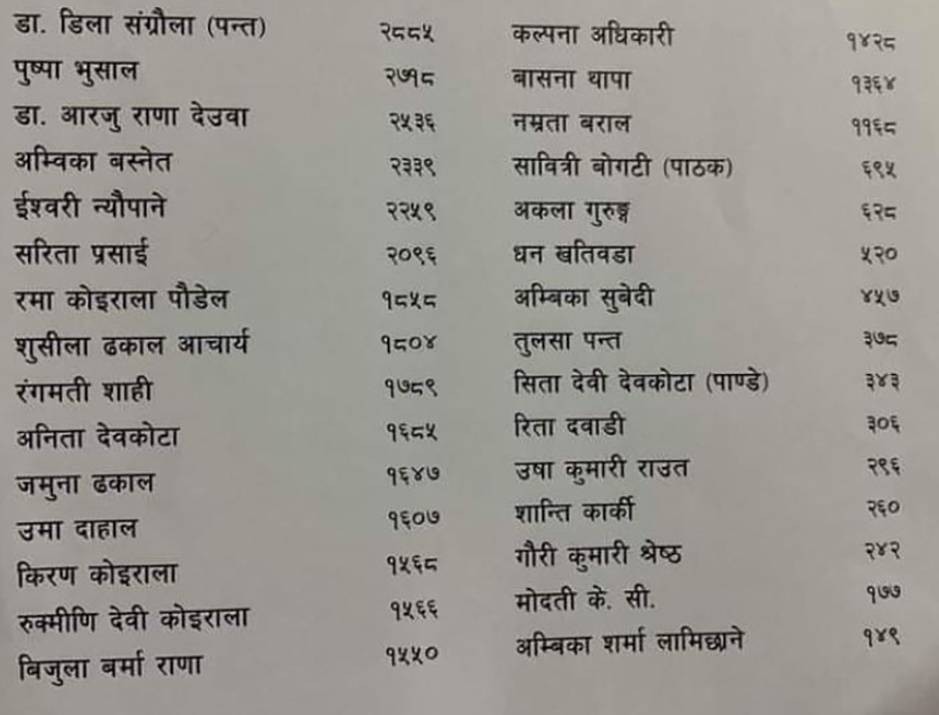 डा. डिला संग्रौला (पन्त) २८८५
पुष्पा भुसाल २७१८
डा. आरजु राणा देउवा २५३६
अम्विका बस्नेत २३३९
ईश्वरी न्यौपाने २२५९
सरिता प्रसाई २०९६
रमा कोइराला पौडेल १८५८
शुसीला ढकाल आचार्य १८०४
रंगमती शाही १७८९
अनिता देवकोटा १६८५
जमुना ढकाल १६४७
उमा दाहाल १६०७
किरण कोइराला १५६८
रुक्मीणि देवी कोइराला १५६६
बिजुला बर्मा राणा १५५०
कल्पना अधिकारी १४२८
बासना थापा १३६४
नम्रता बराल ११६८
सावित्री बोगटी (पाठक) ६९५
अकला गुरुङ्ग ६२८
धन खतिवडा ५२०
अम्बिका सुबेदी ४५७
तुलसा पन्त ३७८
सिता देवी देवकोटा (पाण्डे) ३४३
रिता दवाडी ३०६
उषा कुमारी राउत २९६
शान्ति कार्की २६०
गौरी कुमारी श्रेष्ठ २४२
मोदती के. सी. १७७
अम्बिका शर्मा लामिछाने १४९